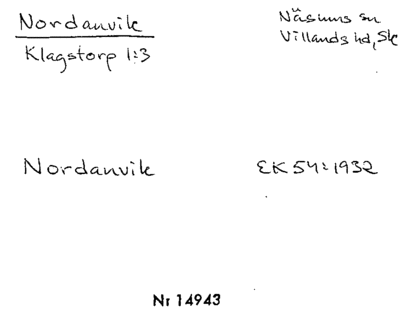 Nordanvik
Klagstorp 1:3
Näsums sn
Villands hd, Sk
Nordanvik
EK 54:1932
Nr 14943